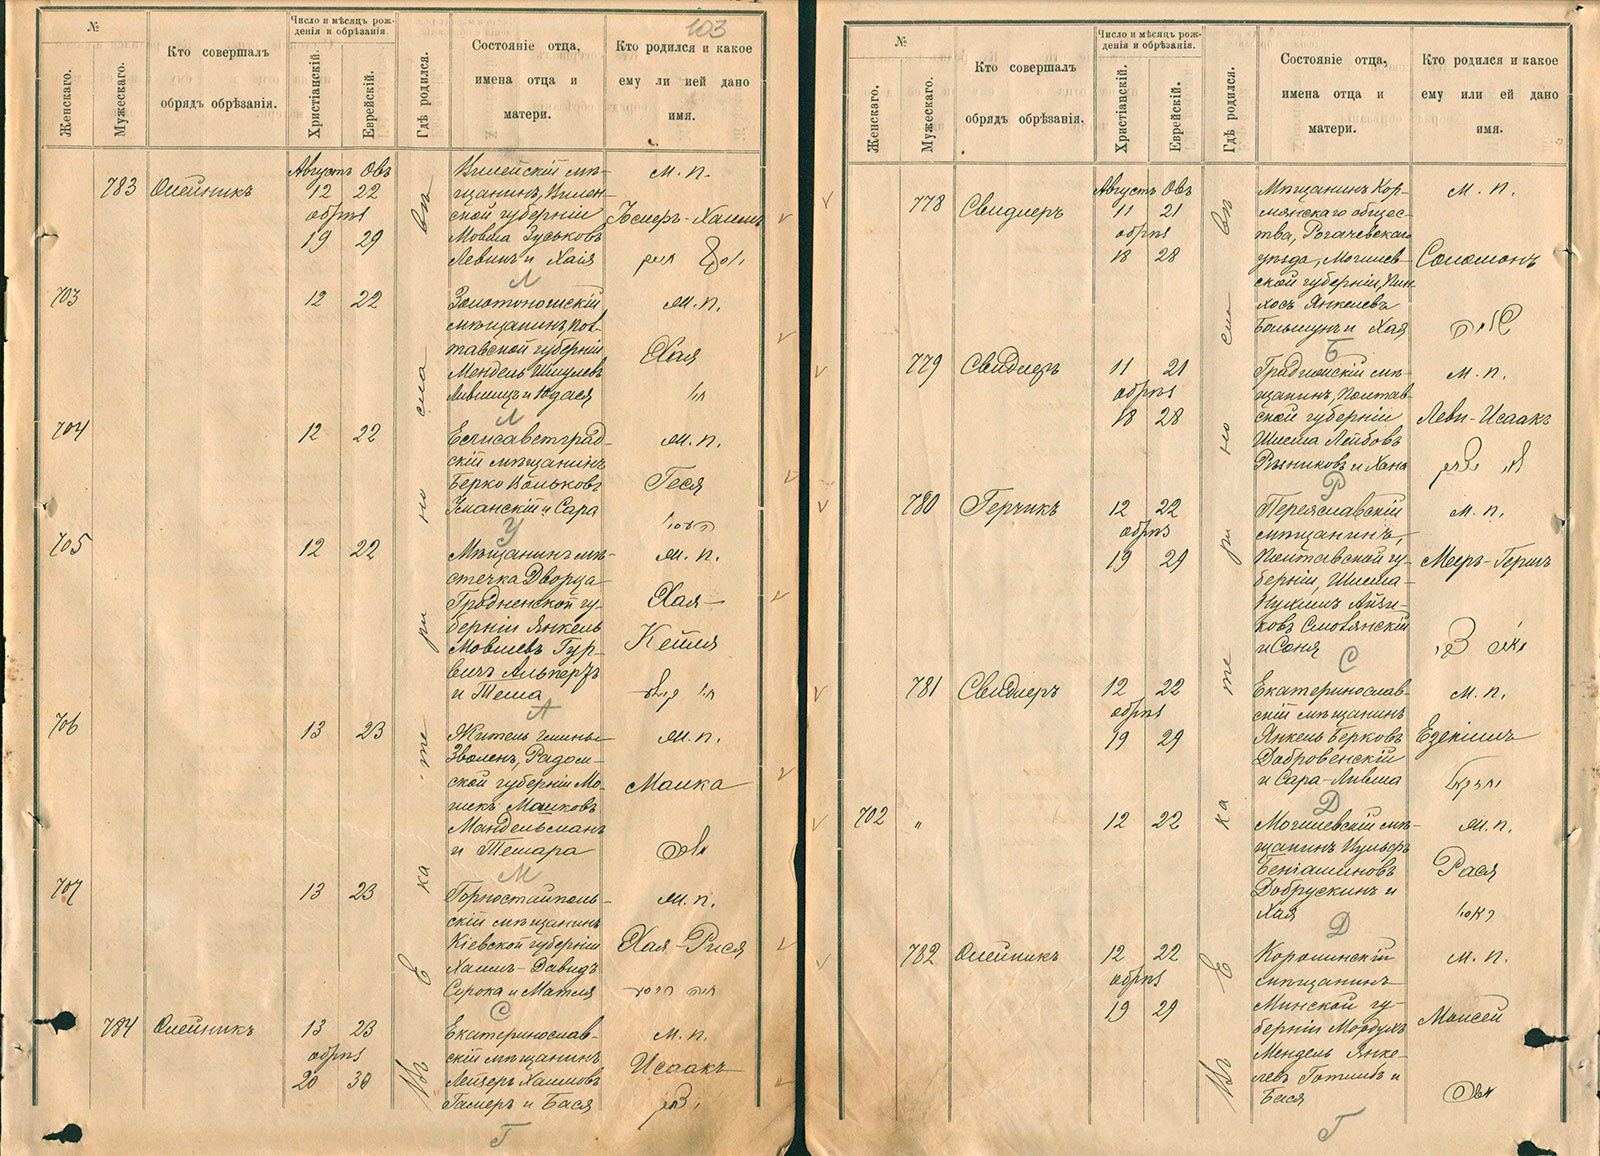 103
№
Женскаго.
Мужескаго.
Кто совершалъ
обрядъ обрѣзанія.
Число и мѣсяцъ рож-
денія и обрѣзанія
Христіанскій.
Еврейскій.
Гдѣ родился.
Состояніе отца,
имена отца и
матери.
Кто родился и какое
ему ли ией дано
имя.
783 Олейникъ
Августъ Овъ
12 22
обрѣз
19 29
Вилейскій мѣ-
щанинъ, Вилен-
ской губерніи
Мовша Зуськовъ
Левинъ и Хая
м. п.
Іосифъ-Хаимъ
Л
703
12 22
Золотоношскій
мѣщанинъ, Пол-
тавской губерніи
Мендель Шмулевъ
Лившицъ и Юдася
м. п.
Хая
Л
704
12 22
Елисаветград-
скій мѣщанинъ
Берко Вольковъ
Уманскій и Сара
м. п.
Геся
У
705
12 22
Мѣщанинъ мѣ-
стечка Дворца
Гродненской гу-
берніи Янкель
Мовшевъ Гур-
вичъ Альперъ
и Тема
м. п.
Хая-
Кейля
А
706
13 23
Житель гмины
Зволенъ, Радом-
ской губерніи Мо-
шекъ Мошковъ
Мандельсманъ
и Темара
м. п.
Малка
М
707
13 23
Горностайполь-
скій мѣщанинъ
Кіевской губерніи
Хаимъ-Давидъ
Сорока и Матля
м. п.
Хая-Рися
С
784 Олейникъ
13 23
обрѣз
20 30
Екатеринослав-
скій мѣщанинъ
Лейзеръ Хаимовъ
Гамеръ и Бася
м. п.
Исаакъ
Г
Въ Екатеринославѣ
№
Женскаго.
Мужескаго.
Кто совершалъ
обрядъ обрѣзанія.
Число и мѣсяцъ рож-
денія и обрѣзанія.
Христіанскій.
Еврейскій.
Гдѣ родился.
Состояніе отца,
имена отца и
матери.
Кто родился и какое
ему или ей дано
имя.
778 Свидлеръ
Августъ Овъ
11 21
обрѣз
18 28
Мѣщанинъ Кор-
мянскаго общес-
тва, Рогачевскаго
уѣзда, Могилев-
ской губерніи, Пин-
хосъ Янкелевъ
Большунъ и Хая
м. п.
Соломонъ
Б
779 Свидлеръ
11 21
обрѣз
18 28
Градижскій мѣ-
щанинъ, Полтав-
ской губерніи
Шлема Лейбовъ
Рѣзниковъ и Хана
м. п.
Леви-Исаакъ
Р
780 Герчикъ
12 22
обрѣз
19 29
Переяславскій
мѣщанинъ,
Полтавской гу-
берніи, Шлема-
Нухимъ Айзи-
ковъ Смолянскій
и Соня
м. п.
Мееръ-Гершъ
С
781 Свидлеръ
12 22
обрѣз
19 29
Екатеринослав-
скій мѣщанинъ
Янкель Берковъ
Добровенскій
и Сара-Ливша
м. п.
Езекіиль
Д
702 "
12 22
Могилевскій мѣ-
щанинъ Гильеръ
Беніаминовъ
Добрускинъ и
Хая
м. п.
Рася
Д
782 Олейникъ
12 22
обрѣз
19 29
Королинскій
мѣщанинъ
Минской гу-
берніи Мордухъ
Мендель Янке-
левъ Готлибъ и
Бася
м. п.
Моисей
Г
Въ Екатеринославѣ